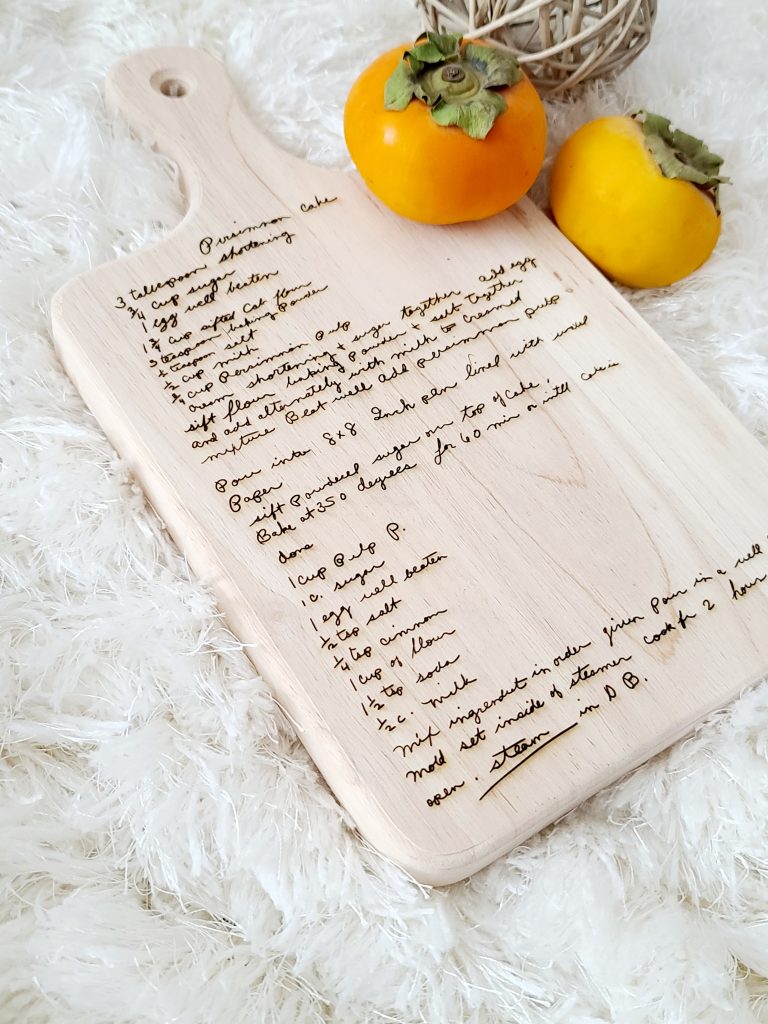 Persimmon cake
3 tablespoon shortening
3/4 cup sugar
1 egg well beaten
1 3/4 cup sifted cake flour
3 teaspoon baking Powder
teaspoon salt
1/2 cup milk
3/4 cup Persimmon Pulp
cream shortening + sugar together add egg
sift flour baking Powder + salt together
and add alternately with milk to creamed
mixture Beat well add persimmon pulp.
Pour into 8x8 Inch pan lined with waxed
Paper
sift Powdered sugar on top of cake.
Bake at 350 degrees for 60 min or intill cake is
done
1 cup Pulp P.
1 c. sugar
1 egg well beaten
1/2 tsp salt
1/4 tsp cinnmon
1 cup of flour
1 1/2 tsp soda
1/2 c. milk
mix ingredent in order given Pour in a well
mold set inside of steamer cook for 2 hour
open. steam in D B.